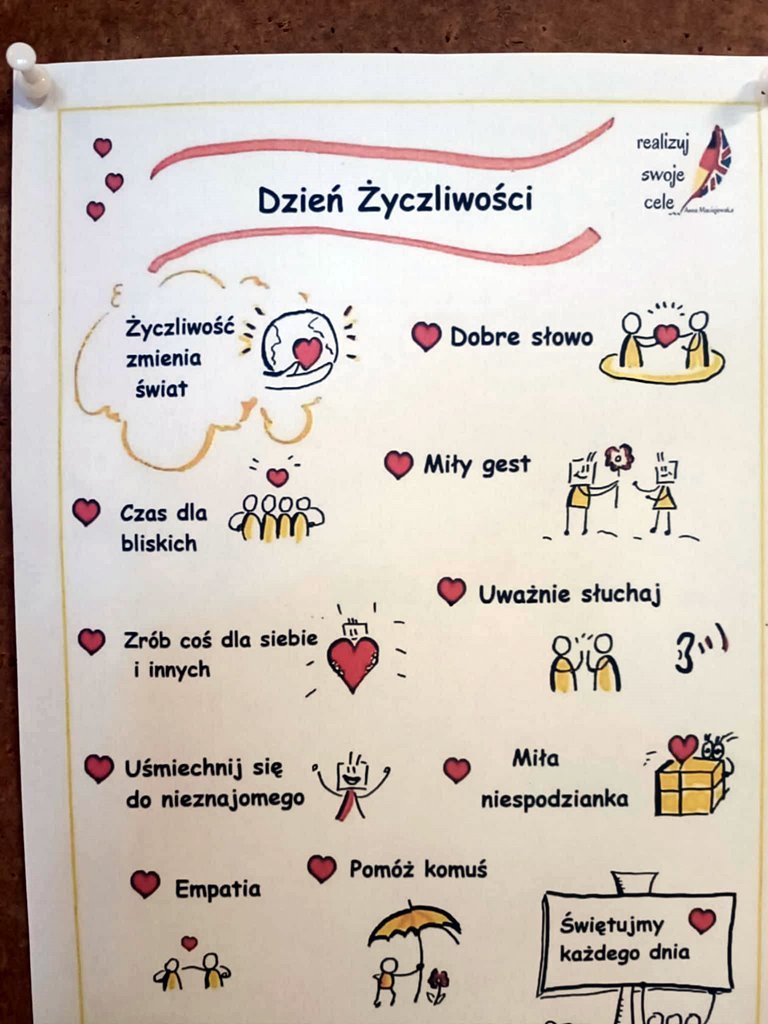 Dzień Życzliwości
realizuj
swoje
cele
Anna Maciejewska
Życzliwość
zmienia
świat
Dobre słowo
Miły gest
Czas dla
bliskich
Uważnie słuchaj
Zrób coś dla siebie
i innych
Uśmiechnij się
do nieznajomego
Miła
niespodzianka
Empatia
Pomóż komuś
Świętujmy
każdego dnia